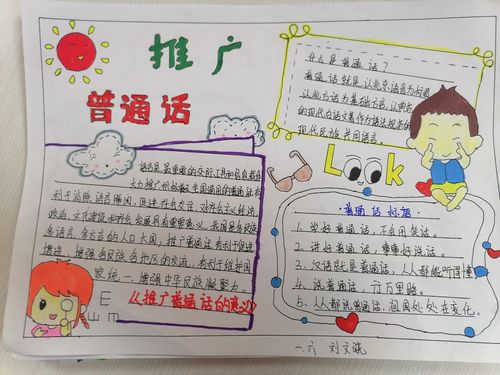 推广
普通话
什么是普通话？
普通话就是以北京语音为标准
以北方话为基础方言，以典范
的现代白话文著作为语法规范的
现代民族共同语言。
语言是最重要的交际工具和信息载体
大力推广和
利于消除语言隔阂，促进社会交往，对社会主义经济
政治、文化建设和社会发展具有重要意义。我国是多民族
多语言、多方言的人口大国，推广普通话有利于促进
增进各民族各地区的交流，有利于维护国
家统一，增强中华民族凝聚力。
《推广普通话的意义》
E
m
Look
普通话标语
1、学好普通话，不自用笑话。
2、讲好普通话，事事好说话。
3、汉语就是普通话，人人都能听得懂
4、说普通话，行万里路。
5、人人都说普通话，祖国处处在变化。
一.六 刘文晓